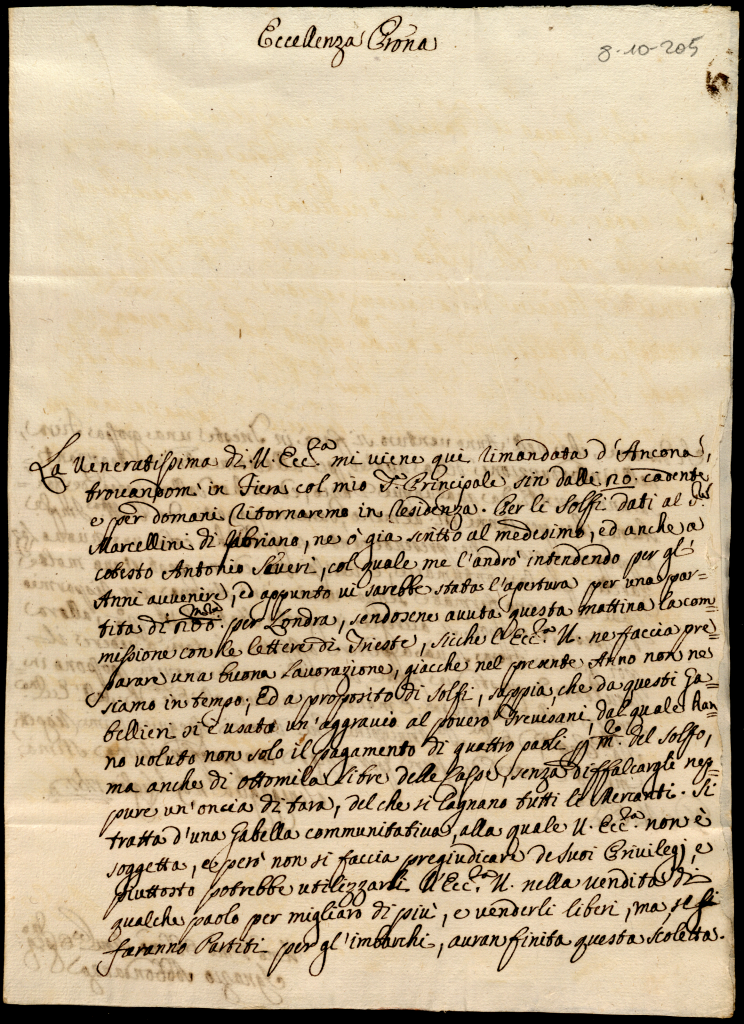 Eccellenza Prona
8-10-205
La Veneratissima di V. Ecc.za mi viene qui rimandata d'Ancona,
trovandomi in Fiera col mio S.r Principale sin dalli 20. cadente
e per domani ritornaremo in residenza. Per li Solfi dati al S.r
Marcellini di Urbriano, ne ò già scritto al medesimo, ed anche a
cotesto Antonio Saveri, col quale me l'andrò intendendo per gl'
Anni avvenire, ed appunto vi sarebbe stata l'apertura per una par=
tita di per Londra, sendosene avuta questa mattina la com=
missione con le lettere di Trieste, sicche l'Ecc.za V. ne faccia pre=
parare una buona Lavorazione, giacche nel presente Anno non ne
siamo in tempo; Ed a proposito di Solfi, sappia, che da questi Ga=
bellieri si è usato un'aggravio al povero Trevisani, dal quale han=
no voluto non solo il pagamento di quattro paoli p m.o del solfo,
ma anche di ottomila Libre delle Casse, senza diffalcargli nep=
pure un'oncia di tara, del che si lagnano tutti li Mercanti. Si
tratta d'una Gabella communitativa, alla quale V. Ecc.za non è
soggetta, e però non si faccia pregiudicare de suoi Privilegj, e
piuttosto potrebbe utilizzarsi l'Ecc.za V. nella vendita di
qualche paolo per migliaro di più, e venderli liberi, ma se si
faranno Partiti per gl'imbarchi, avran finita questa Scoletta.